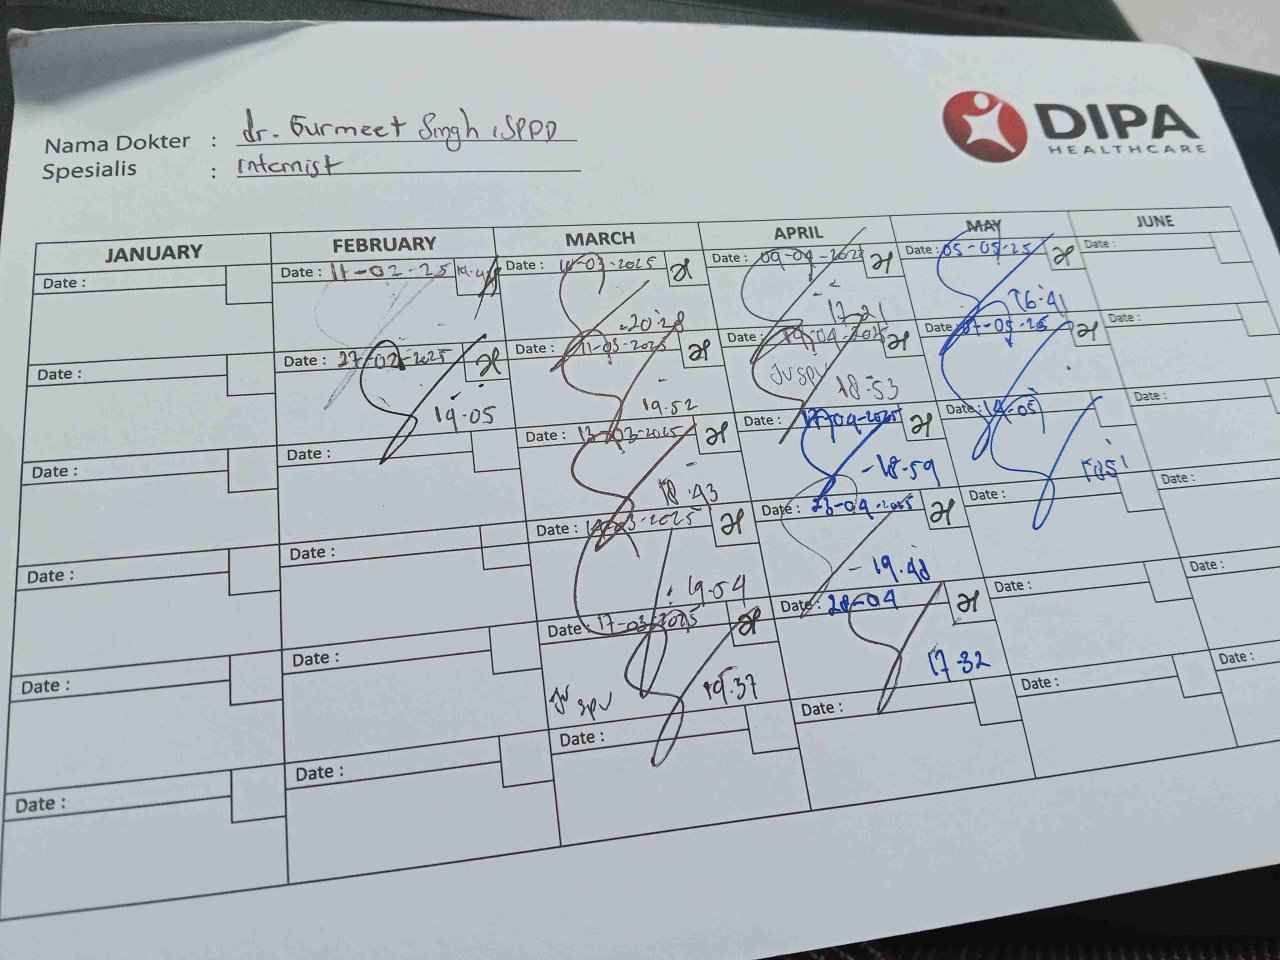 DIPA
HEALTHCARE
Nama Dokter : dr. Gurmeet Singh, SPPD
Spesialis : Internist
JANUARY FEBRUARY MARCH APRIL MAY JUNE
Date : Date : 11-02-25 Date : Date : Date : 05-05-25 Date :
20.28 17.21 16.41
Date : Date : 27-02-2025 Date : 11-03-2025 Date : Date : 07-05-25 Date :
19.05 19.52 JV SPV 18.53
Date : Date : Date : 13-03-2025 Date : 17-04-2025 Date : 14-05 Date :
18.43 -18.59
Date : Date : Date : Date : 23-04-2025 Date : Date :
19.54 - 19.48
Date : Date : Date : 17-03-2025 Date : 28-04 Date : Date :
JV SPV 19.37 17.32
Date : Date : Date : Date : Date : Date :